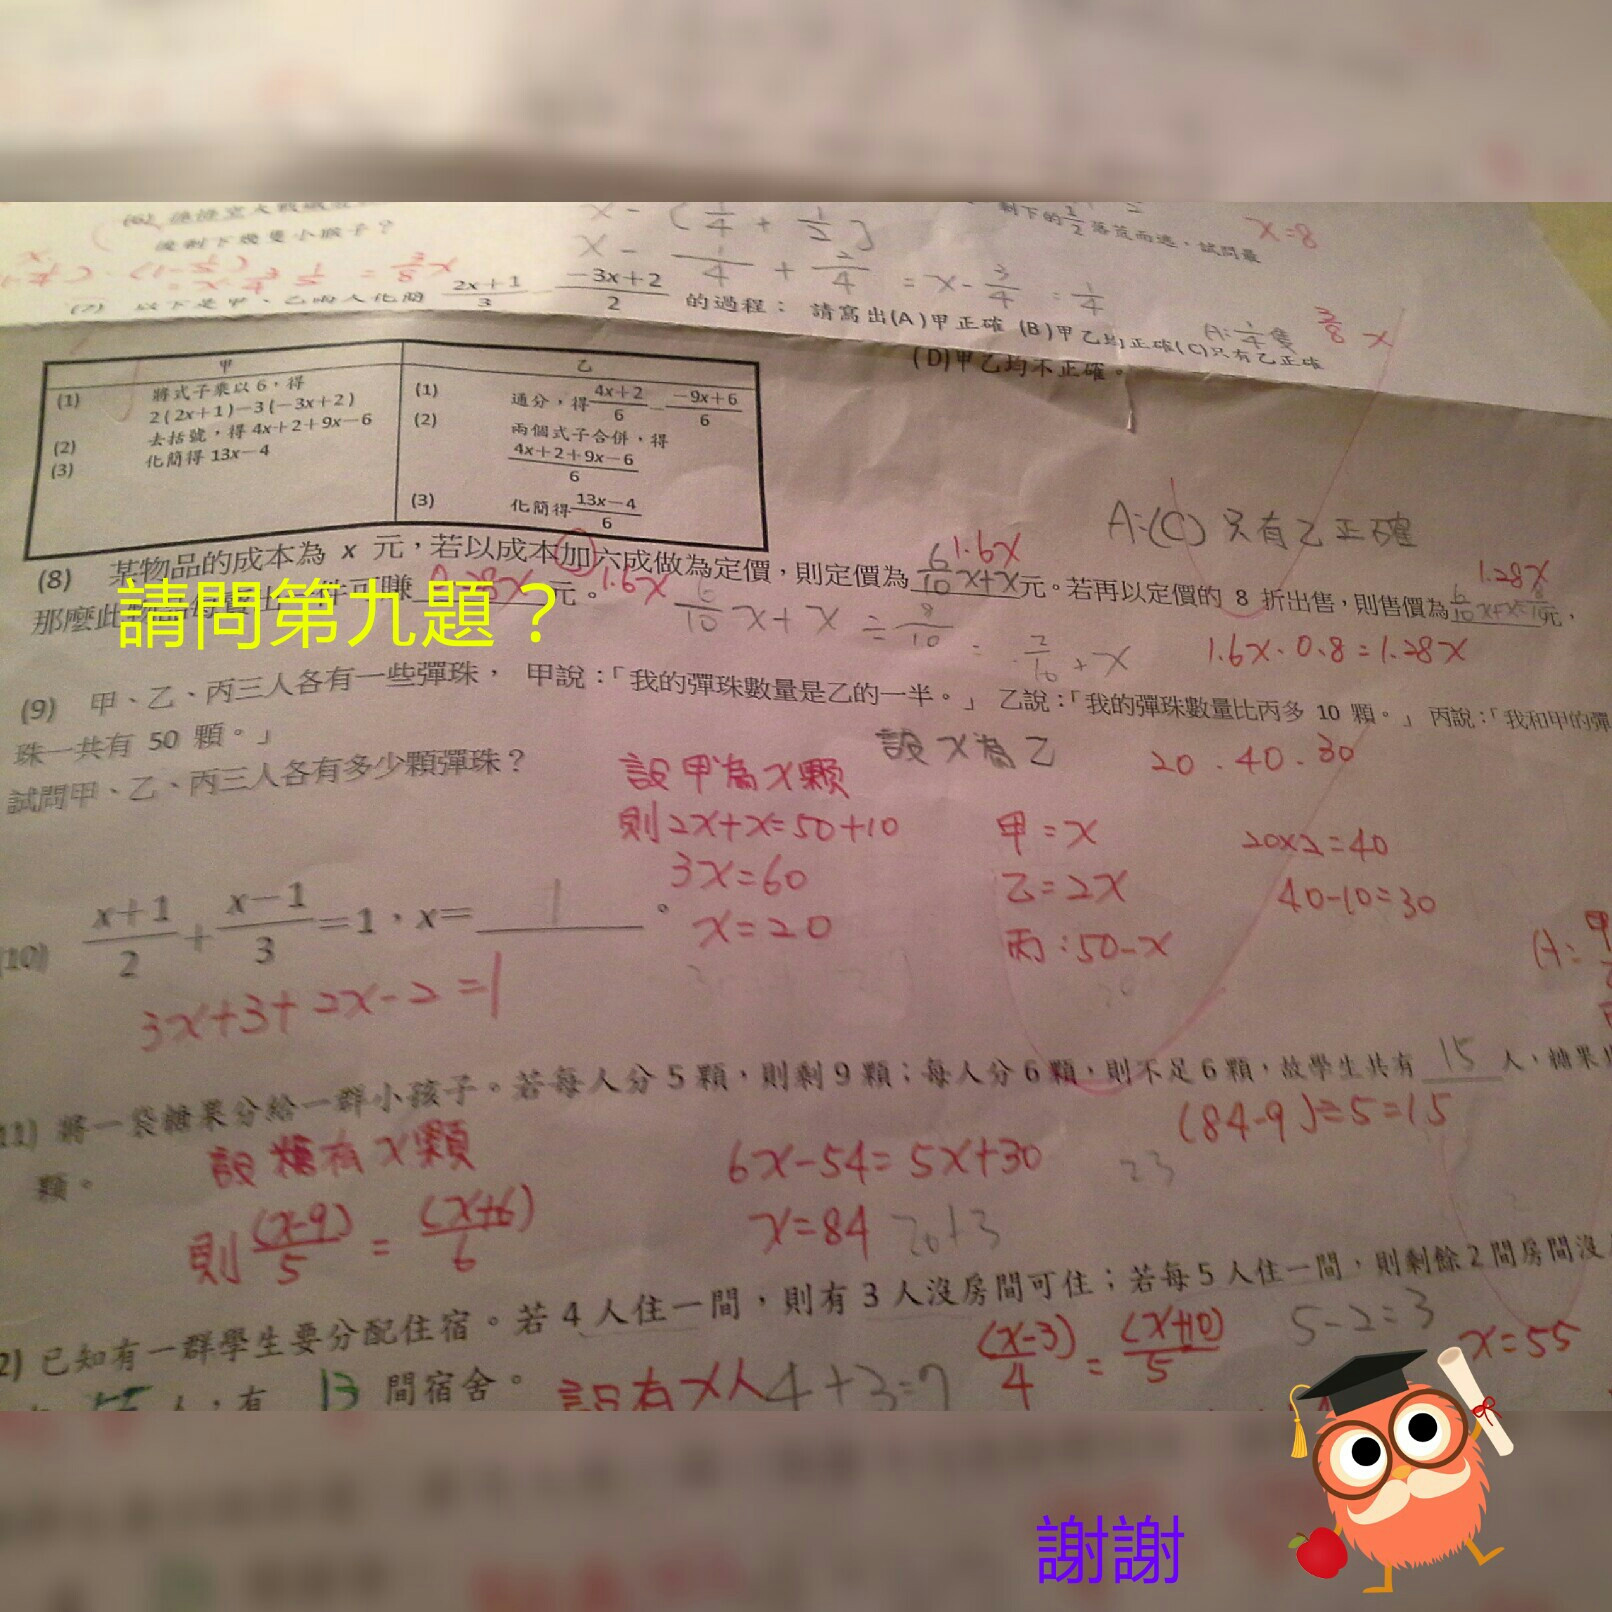 後剩下幾隻小猴子？
x - ( 1/4 + 1/2 )
剩下的 1/2 落荒而逃，試問最
x=8
x - 1/4 + 2/4 = x - 3/4 = 1/4
= 3/8 x
(7) 以下是甲、乙兩人化簡 2x+1/3 - -3x+2/2 的過程： 請寫出(A)甲正確 (B)甲乙均正確(C)只有乙正確
(D)甲乙均不正確。
A: 1/4 隻
3/8 x
甲
(1) 將式子乘以 6，得
2(2x+1)－3(－3x+2)
(2) 去括號，得 4x+2+9x－6
(3) 化簡得 13x－4
乙
(1) 通分，得 4x+2/6 － －9x+6/6
(2) 兩個式子合併，得
4x+2+9x－6/6
(3) 化簡得 13x－4/6
A:(C) 只有乙正確
(8) 某物品的成本為 x 元，若以成本加六成做為定價，則定價為 6/10 x+x 元。若再以定價的 8 折出售，則售價為
1.6x
1.28x
那麼此 元。
1.6x
6/10 x + x ÷ 8/10 = 2/10 + x
1.6x · 0.8 = 1.28x
請問第九題？
(9) 甲、乙、丙三人各有一些彈珠， 甲說：「我的彈珠數量是乙的一半。」 乙說：「我的彈珠數量比丙多 10 顆。」 丙說：「我和甲的彈
珠一共有 50 顆。」
試問甲、乙、丙三人各有多少顆彈珠？
設 x 為 乙
20 . 40 . 30
設甲為 x 顆
則 2x+x=50+10
3x=60
x=20
甲 = x
乙 = 2x
丙 : 50-x
20x2=40
40-10=30
(10) x+1/2 + x－1/3 =1，x= 1 。
3x+3+2x-2=1
11) 將一袋糖果分給一群小孩子。若每人分 5 顆，則剩 9 顆；每人分 6 顆，則不足 6 顆，故學生共有 15 人，糖果
顆。
設 糖有 x 顆
則 (x-9)/5 = (x+6)/6
6x-54=5x+30
x=84
20+3
23
(84-9)÷5=15
2) 已知有一群學生要分配住宿。若 4 人住一間，則有 3 人沒房間可住；若每 5 人住一間，則剩餘 2 間房間沒
人，有 13 間宿舍。
設有 x 人
4+3=7
(x-3)/4 = (x+10)/5
5-2=3
x=55
謝謝